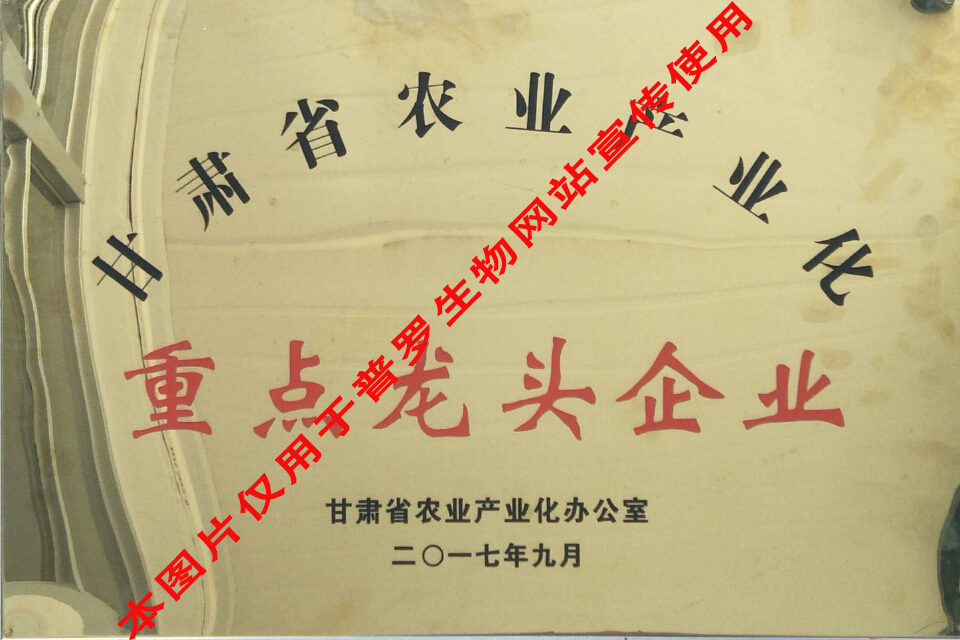 甘肃省农业产业化
重点龙头企业
甘肃省农业产业化办公室
二〇一七年九月
本图片仅用于普罗生物网站宣传使用